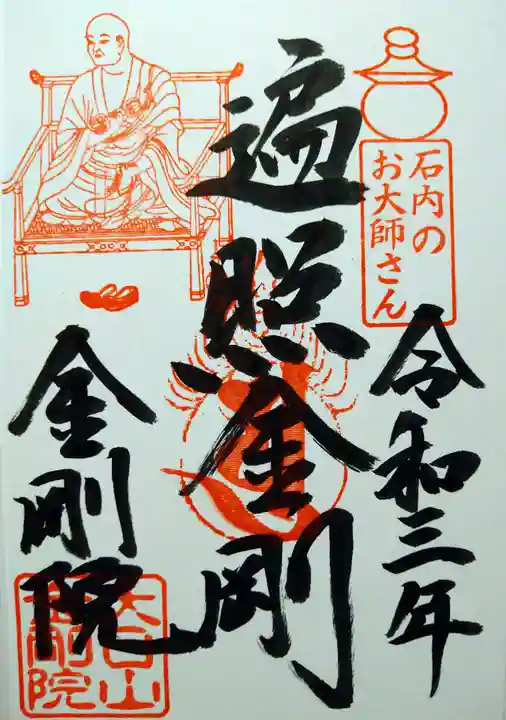 石内の
お大師さん
令和三年
遍照金剛
金剛院
大日山
金剛院